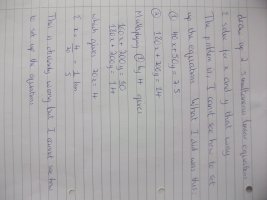 draw up 2 simultaneous linear equations
& solve for x and y that way.
The problem is, I can't see how to set
up the equations. What I did was this:
① 40x + 50y = 2.5
② 180x + 200y = 14
Multiplying ① by 4 gives
160x + 200y = 10
180x + 200y = 14
which gives 20x = 4
x = 4/20 = 1/5 km.
This is clearly wrong but I cannot see how
to set up the equations.